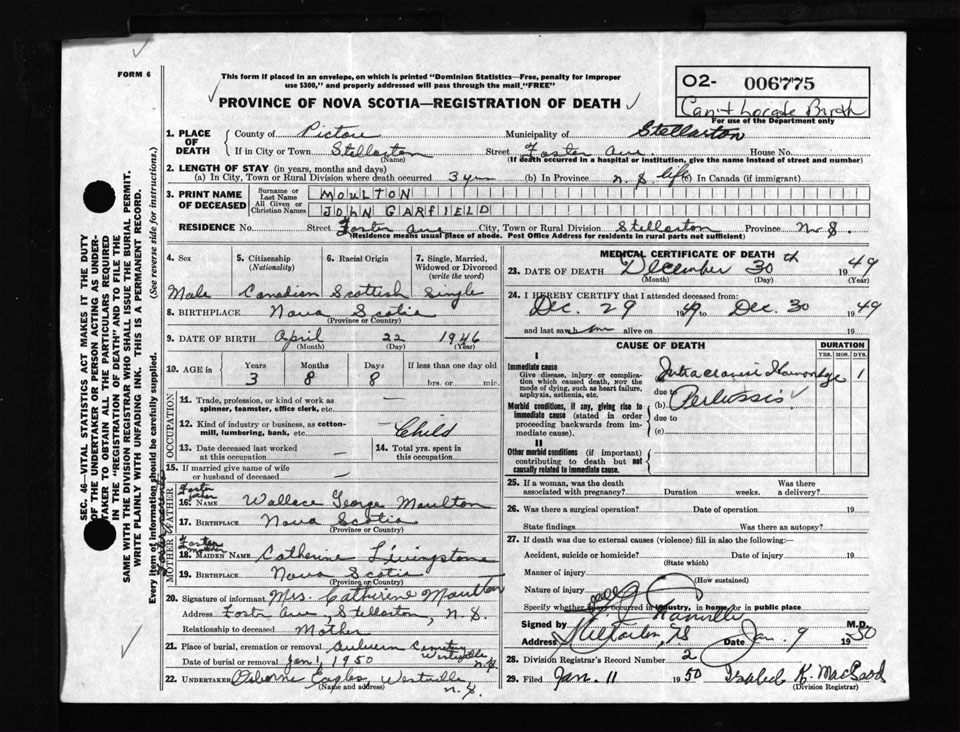 FORM 6
This form if placed in an envelope, on which is printed "Dominion Statistics—Free, penalty for improper
use $300," and properly addressed will pass through the mail "FREE"
PROVINCE OF NOVA SCOTIA—REGISTRATION OF DEATH
O2- 006775
Can't Locate Birth
For use of the Department only
1. PLACE OF DEATH
County of Pictou Municipality of Stellarton
If in City or Town Stellarton Street Foster Ave. House No.
(Name) (If death occurred in a hospital or institution, give the name instead of street and number)
2. LENGTH OF STAY (in years, months and days)
(a) In City, Town or Rural Division where death occurred 3 yrs (b) In Province N.S. life (c) In Canada (if immigrant)
3. PRINT NAME OF DECEASED
Surname or Last Name MOULTON
All Given or Christian Names JOHN GARFIELD
RESIDENCE No. Street Foster Ave City, Town or Rural Division Stellarton Province N.S.
(Residence means usual place of abode. Post Office Address for residents in rural parts not sufficient)
4. Sex 5. Citizenship (Nationality) 6. Racial Origin 7. Single, Married, Widowed or Divorced (write the word)
Male Canadian Scottish Single
8. BIRTHPLACE Nova Scotia
(Province or Country)
9. DATE OF BIRTH April 22 1946
(Month) (Day) (Year)
10. AGE in Years Months Days If less than one day old
3 8 8 hrs. or min.
OCCUPATION
11. Trade, profession, or kind of work as spinner, teamster, office clerk, etc. —
12. Kind of industry or business, as cotton-mill, lumbering, bank, etc. Child
13. Date deceased last worked at this occupation — 14. Total yrs. spent in this occupation
15. If married give name of wife or husband of deceased —
FATHER
Foster Father
16. Name Wallace George Moulton
17. BIRTHPLACE Nova Scotia
(Province or Country)
MOTHER
Foster Mother
18. MAIDEN NAME Catherine Livingstone
19. BIRTHPLACE Nova Scotia
(Province or Country)
20. Signature of informant Mrs. Catherine Moulton
Address Foster Ave, Stellarton, N.S.
Relationship to deceased Mother
21. Place of burial, cremation or removal Auburn Cemetery Westville N.S.
Date of burial or removal Jan 1, 1950
22. UNDERTAKER Osborne Eagles, Westville, N.S.
(Name and address)
MEDICAL CERTIFICATE OF DEATH
23. DATE OF DEATH December 30th 1949
(Month) (Day) (Year)
24. I HEREBY CERTIFY that I attended deceased from:
Dec. 29 1949 to Dec. 30 1949
and last saw him alive on 19
CAUSE OF DEATH DURATION
YRS. MOS. DYS.
I
Immediate cause
Give disease, injury or complication which caused death, not the mode of dying, such as heart failure, asphyxia, asthenia, etc.
1
due to
Morbid conditions, if any, giving rise to immediate cause (stated in order proceeding backwards from immediate cause).
(b) Pertussis
due to
(c)
II
Other morbid conditions (if important) contributing to death but not causally related to immediate cause.
25. If a woman, was the death associated with pregnancy? Duration weeks. Was there a delivery?
26. Was there a surgical operation? Date of operation 19
State findings Was there an autopsy?
27. If death was due to external causes (violence) fill in also the following:—
Accident, suicide or homicide? Date of injury 19
(State which)
Manner of injury
(How sustained)
Nature of injury
Specify whether injury occurred in industry, in home, or in public place
Signed by M.D.
Address Date Jan. 9 1950
28. Division Registrar's Record Number 2
29. Filed Jan. 11 1950 K. MacLeod
(Division Registrar)
SEC. 46—VITAL STATISTICS ACT MAKES IT THE DUTY
OF THE UNDERTAKER OR PERSON ACTING AS UNDER-
TAKER TO OBTAIN ALL THE PARTICULARS REQUIRED
IN THE "REGISTRATION OF DEATH" AND TO FILE THE
SAME WITH THE DIVISION REGISTRAR WHO SHALL ISSUE THE BURIAL PERMIT.
WRITE PLAINLY WITH UNFADING INK. THIS IS A PERMANENT RECORD.
Every item of information should be carefully supplied. (See reverse side for instructions.)
Foster parents